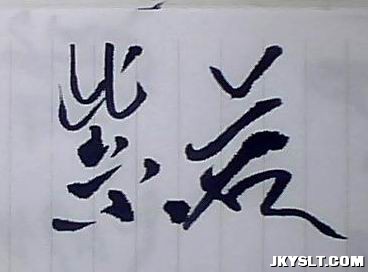 紫若
JKYSLT.COM